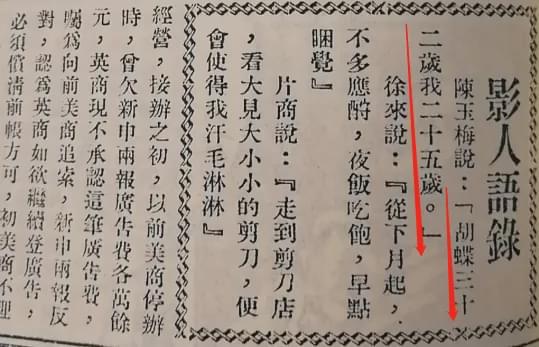 影人語錄
陳玉梅說：「胡蝶三十
二歲我二十五歲。」
徐來說：『從下月起，
不多應酧，夜飯吃飽，早點
睏覺』
片商說：『走到剪刀店
，看大見大小小的剪刀，便
會使得我汗毛淋淋』
經營，接辦之初，以前美商停辦
時，曾欠新申兩報廣告費各萬餘
元，英商現不承認這筆廣告費，
囑爲向前美商追索，新申兩報反
對，認爲英商如欲繼續登廣告，
必須償清前帳方可，初美商不理